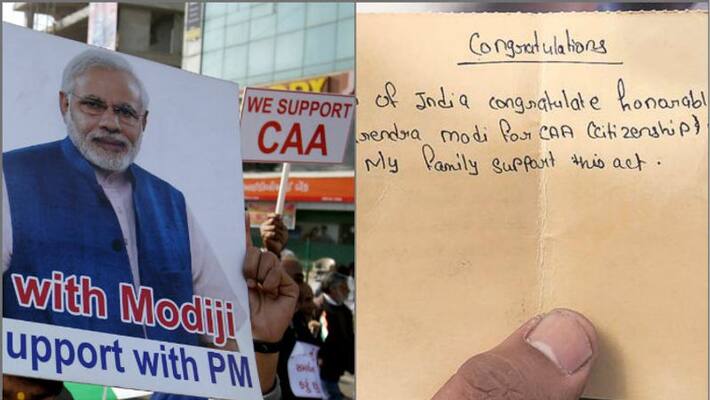 WE SUPPORT
CAA
with Modiji
upport with PM
Congratulations
of India congratulate honorabl
rendra modi for CAA (citizenship)
My family support this act.